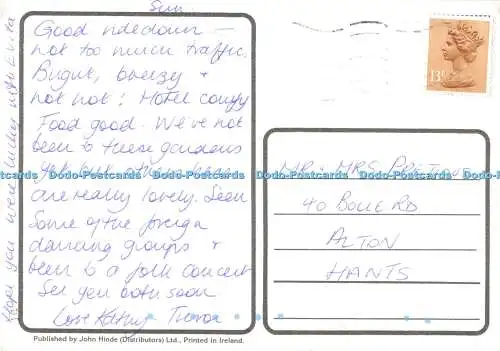 Sun.
Good ride down —
not too much traffic.
Bright, breezy +
not hot! Hotel comfy
Food good. We've not
been to these gardens
yet but others
are really lovely. Seen
some of the foreign
dancing groups +
been to a folk concert
See you both soon
Love Kathy Trevor
Hope you were lucky with
13P
MR & MRS
40 BOLLE RD
ALTON
HANTS
Dodo-Postcards Dodo-Postcards Dodo-Postcards Dodo-Postcards Dodo-Postcards Dodo-Postcards
Published by John Hinde (Distributors) Ltd., Printed in Ireland.